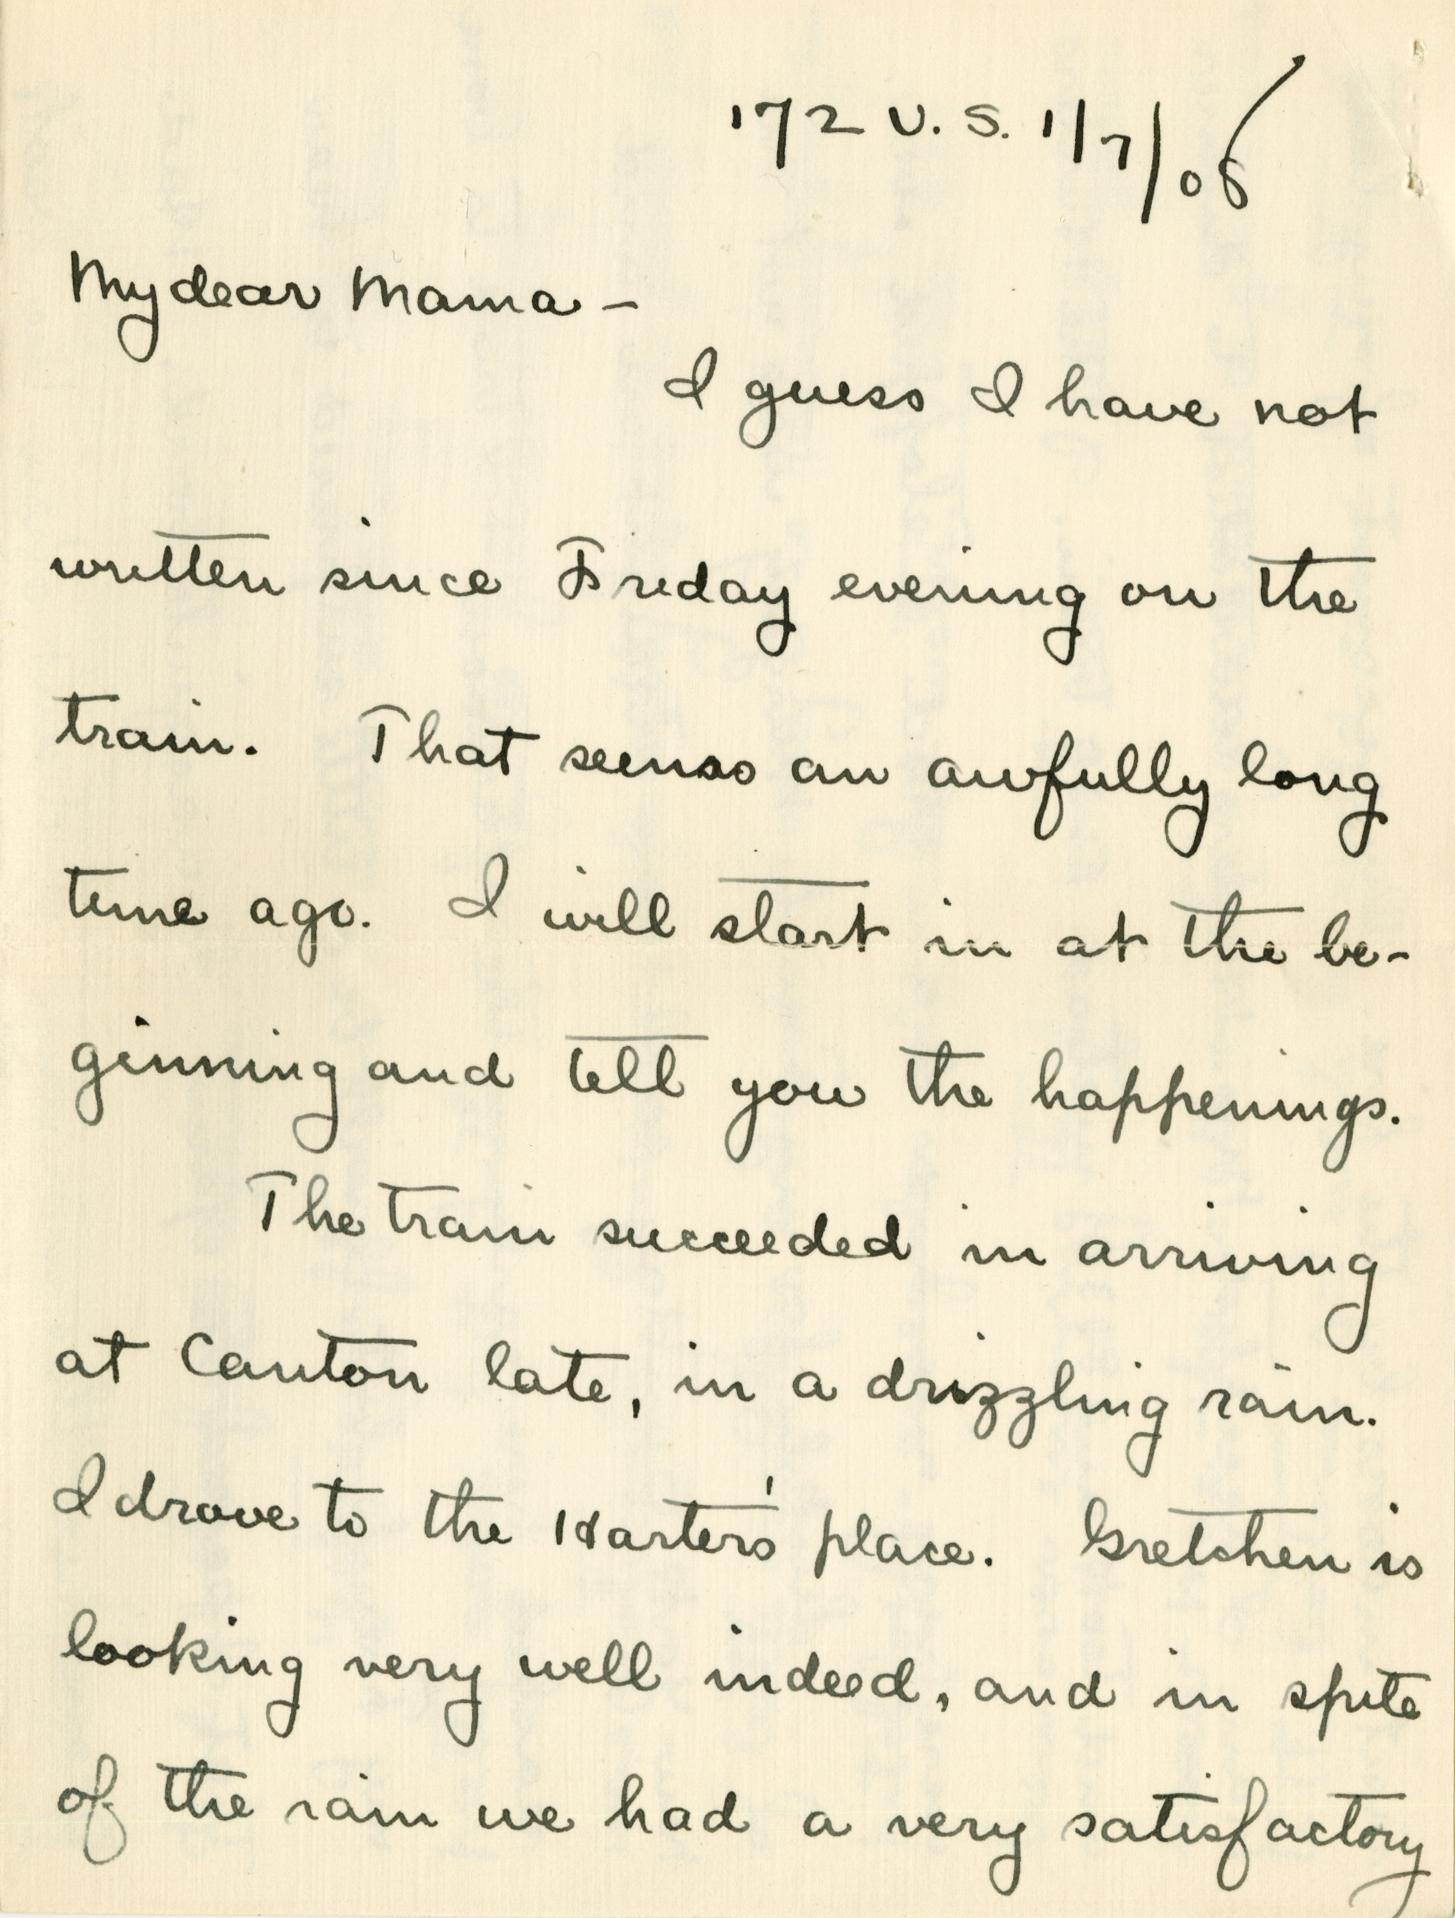 172 U.S. 1/7/06
My dear Mama –
I guess I have not
written since Friday evening on the
train. That seems an awfully long
time ago. I will start in at the be-
ginning and tell you the happenings.
The train succeeded in arriving
at Canton late, in a drizzling rain.
I drove to the Harter's place. Gretchen is
looking very well indeed, and in spite
of the rain we had a very satisfactory